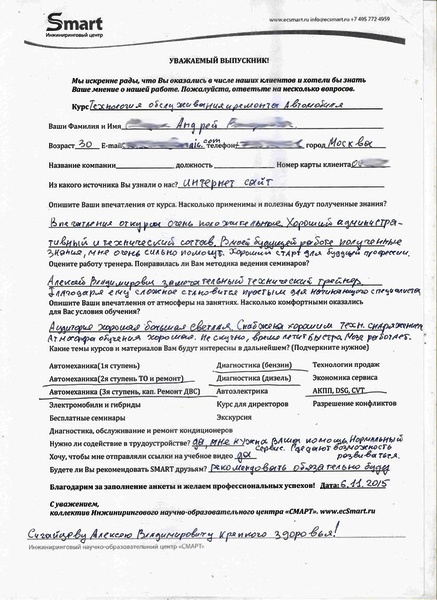 Smart
Инжиниринговый центр
www.ecsmart.ru info@ecsmart.ru +7 495 772 4959
УВАЖАЕМЫЙ ВЫПУСКНИК!
Мы искренне рады, что Вы оказались в числе наших клиентов и хотели бы знать
Ваше мнение о нашей работе. Пожалуйста, ответьте на несколько вопросов.
Курс Технология обслуживания и ремонта Автомобиля
Ваши Фамилия и Имя Андрей
Возраст 30 E-mail .com телефон город Москва
Название компании должность Номер карты клиента
Из какого источника Вы узнали о нас? интернет сайт
Опишите Ваши впечатления от курса. Насколько применимы и полезны будут полученные знания?
Впечатления от курса очень положительные. Хороший администра-
тивный и технический состав. В моей будущей работе полученные
знания, мне очень сильно помощь. Хороший старт для будущей профессии.
Оцените работу тренера. Понравилась ли Вам методика ведения семинаров?
Алексей Владимирович замечательный технический трейнер
Благодаря ему сложное становится простым для начинающего специалиста
Опишите Ваши впечатления от атмосферы на занятиях. Насколько комфортными оказались
для Вас условия обучения?
Аудитория хорошая большая светлая. Снабжена хорошим техн. снаряжением
Атмосфера обучения хорошая. Не скучно, время летит быстро. Мозг работает.
Какие темы курсов и материалов Вам будут интересны в дальнейшем? (Подчеркните нужное)
Автомеханика(1я ступень) Диагностика (бензин) Технологии продаж
Автомеханика(2я ступень ТО и ремонт) Диагностика (дизель) Экономика сервиса
Автомеханика (3я ступень, кап. Ремонт ДВС) Автоэлектрика АКПП, DSG, CVT
Электромобили и гибриды Курс для директоров Разрешение конфликтов
Бесплатные семинары Экскурсия
Диагностика, обслуживание и ремонт кондиционеров
Нужно ли содействие в трудоустройстве? да, мне нужна ваша помощь. Нормальный
сервис. Где дают возможность
Хочу, чтобы мне отправляли ссылки на учебное видео да развиваться.
Будете ли Вы рекомендовать SMART друзьям? рекомендовать обязательно буду
Благодарим за заполнение анкеты и желаем профессиональных успехов! Дата: 6.11.2015
С уважением,
коллектив Инжинирингового научно-образовательного центра «СМАРТ». www.ecSmart.ru
Алексею Владимировичу крепкого здоровья!
Инжиниринговый научно-образовательный центр «СМАРТ»